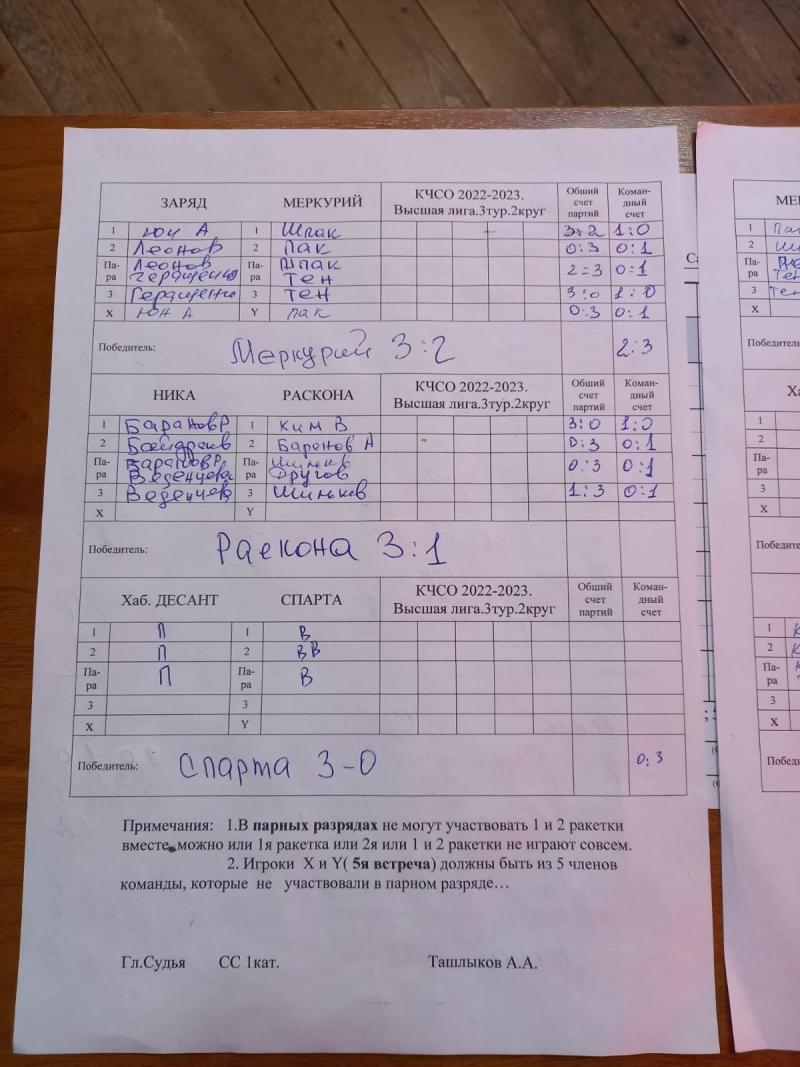 ЗАРЯД МЕРКУРИЙ КЧСО 2022-2023. Высшая лига.3тур.2круг Общий счет партий Коман-дный счет
1 Юн А 1 Шпак 3:2 1:0
2 Леонов 2 Пак 0:3 0:1
Па-ра Леонов Геращенко Па-ра Шпак Тен 2=3 0=1
3 Геращенко 3 Тен 3:0 1:0
X Юн А Y Пак 0:3 0:1
Победитель: Меркурий 3:2 2:3
НИКА РАСКОНА КЧСО 2022-2023. Высшая лига.3тур.2круг Общий счет партий Коман-дный счет
1 Баранов Р 1 Ким В 3:0 1:0
2 2 Баренов А 0:3 0:1
Па-ра Баранов Р Веденцева Па-ра Другов 0:3 0:1
3 Веденцев 3 1:3 0:1
X Y
Победитель: Раскона 3:1
Хаб. ДЕСАНТ СПАРТА КЧСО 2022-2023. Высшая лига.3тур.2круг Общий счет партий Коман-дный счет
1 П 1 В
2 П 2 ВВ
Па-ра П Па-ра В
3 3
X Y
Победитель: Спарта 3-0 0:3
Примечания: 1.В парных разрядах не могут участвовать 1 и 2 ракетки
вместе, можно или 1я ракетка или 2я или 1 и 2 ракетки не играют совсем.
2. Игроки X и Y( 5я встреча) должны быть из 5 членов
команды, которые не участвовали в парном разряде…
Гл.Судья СС 1кат. Ташлыков А.А.